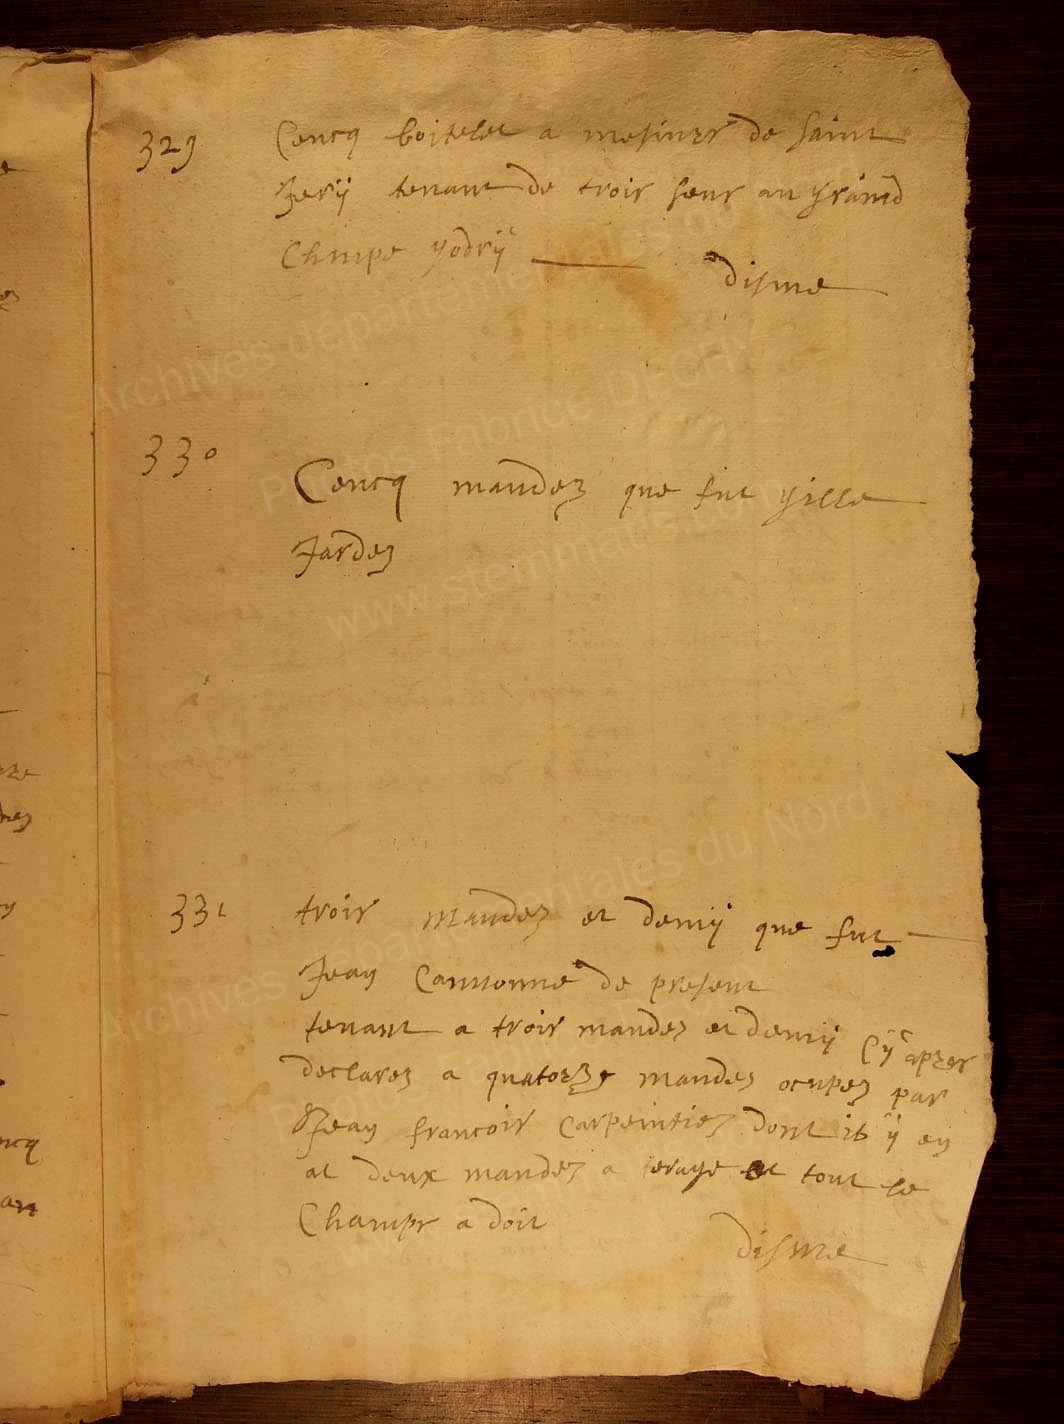 329 Cencq boitelet a mesurer de saint
Jerÿ tenant de troir leur au grand
Champe godrÿ disme
330 Cencq mandez que fut gille
Jardez
331 troir mandez et demÿ que fut
Jean Cantionne de present
tenant a troir mandez et demÿ cÿ aprer
declarez a quatorze mandez ocupez par
Jean francoir Carpentiez dont il ÿ en
at deux mandez a terage et tout le
Champr a doit
disme
Archives départementales du Nord
Photos Fabrice DECHY
www.stemmatis.com
Archives départementales du Nord